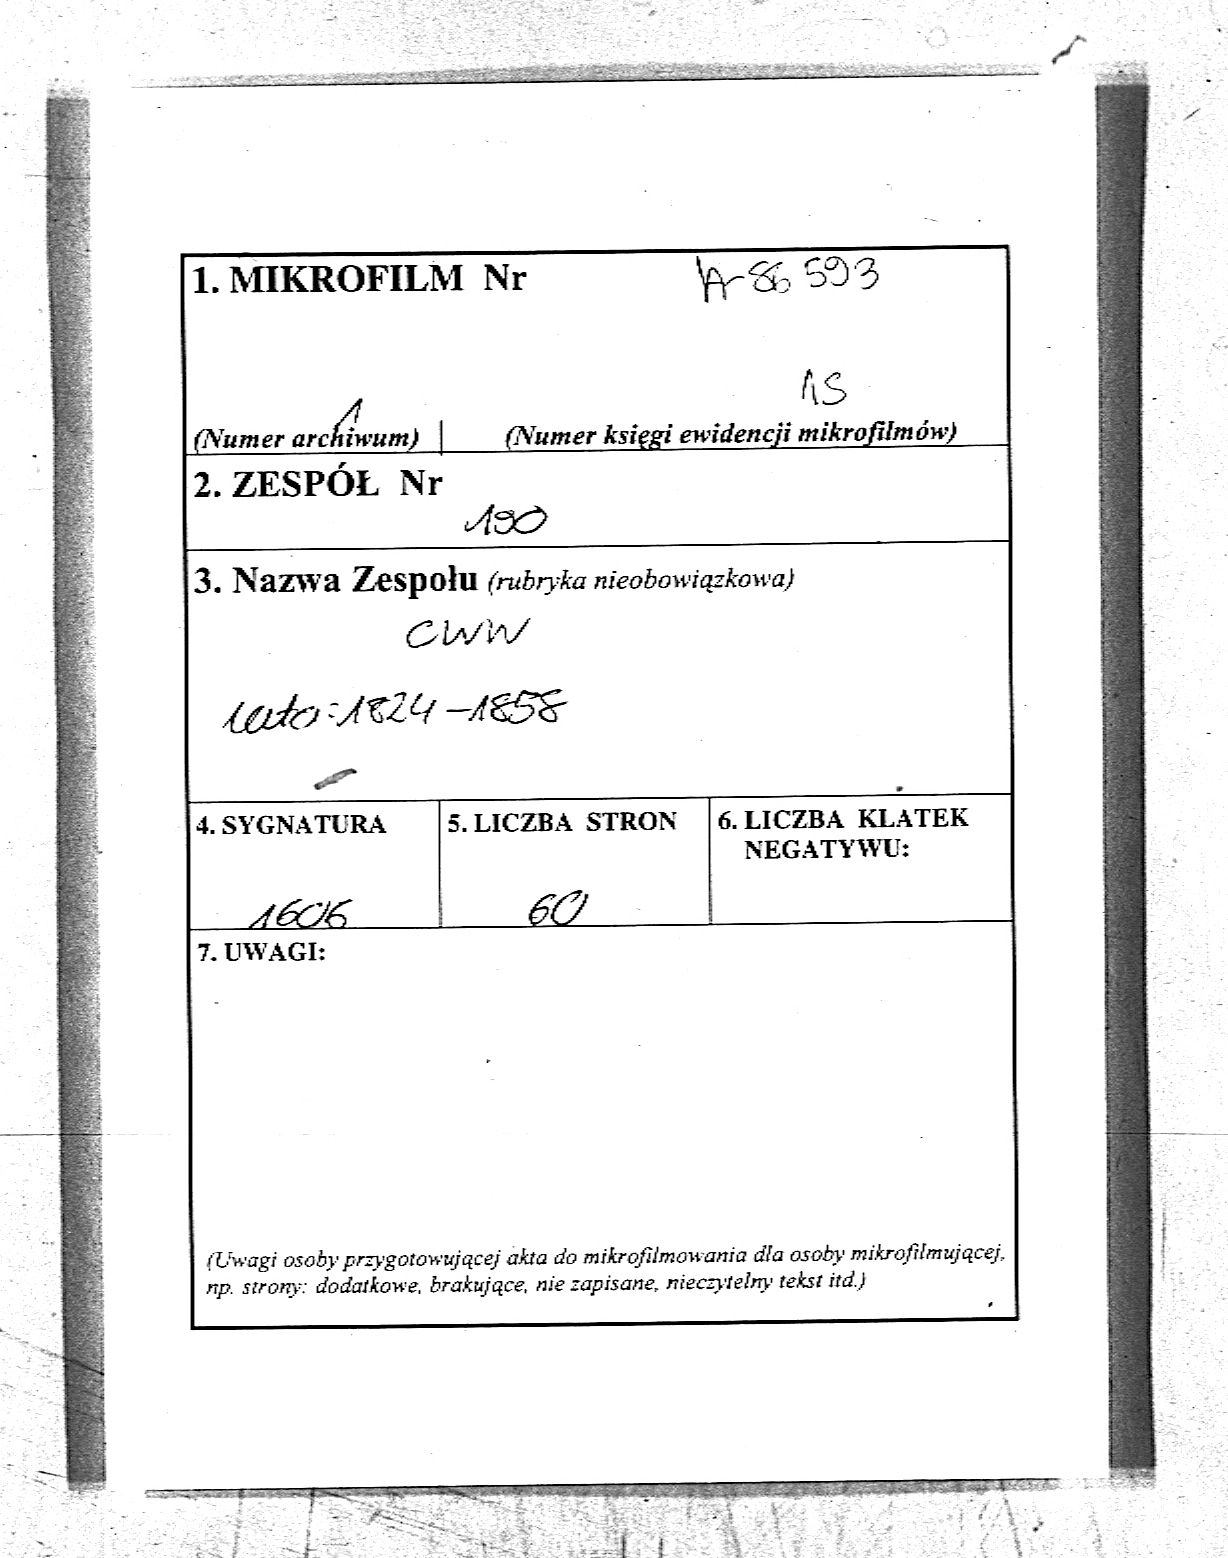 1. MIKROFILM Nr A-86 593
1 15
(Numer archiwum) (Numer księgi ewidencji mikrofilmów)
2. ZESPÓŁ Nr
190
3. Nazwa Zespołu (rubryka nieobowiązkowa)
CWW
lata: 1824-1858
4. SYGNATURA 5. LICZBA STRON 6. LICZBA KLATEK
NEGATYWU:
1606 60
7. UWAGI:
(Uwagi osoby przygotowującej akta do mikrofilmowania dla osoby mikrofilmującej,
np. strony: dodatkowe, brakujące, nie zapisane, nieczytelny tekst itd.)